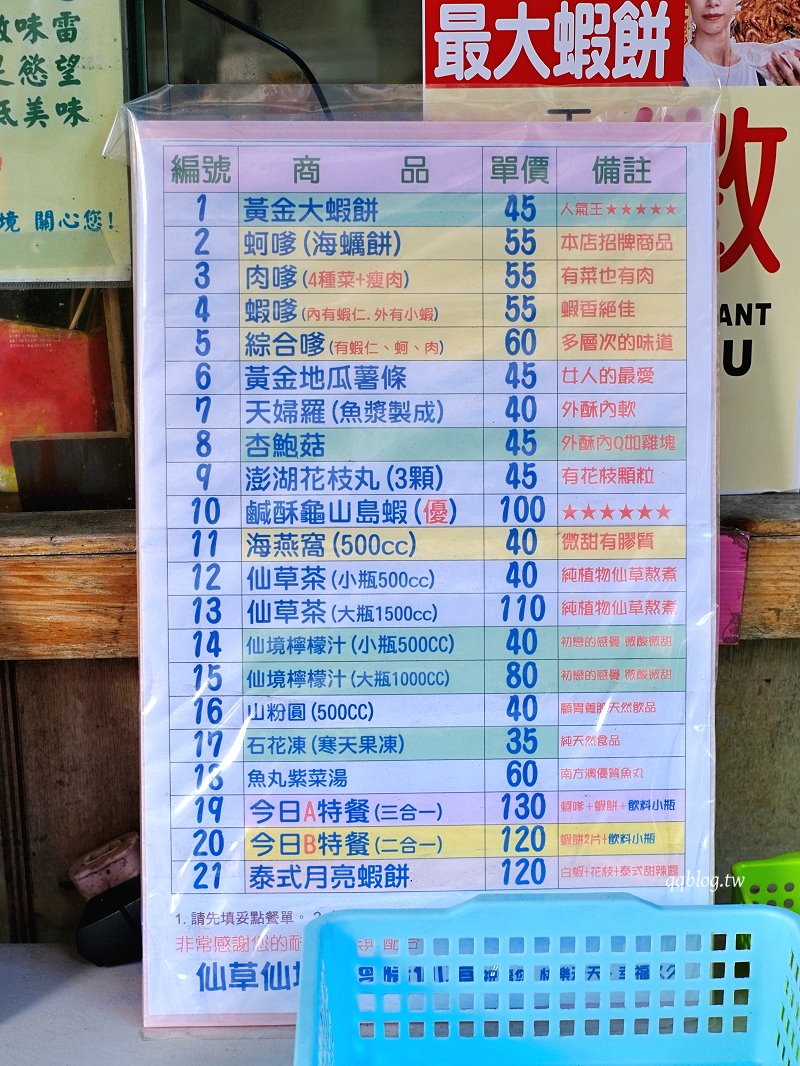 敵味雷
足慾望
低美味
境 關心您!
最大蝦餅
ANT
U
編號 商品 單價 備註
1 黃金大蝦餅 45 人氣王★★★★★
2 蚵嗲(海蠣餅) 55 本店招牌商品
3 肉嗲(4種菜+瘦肉) 55 有菜也有肉
4 蝦嗲(內有蝦仁.外有小蝦) 55 蝦香絕佳
5 綜合嗲(有蝦仁、蚵、肉) 60 多層次的味道
6 黃金地瓜薯條 45 女人的最愛
7 天婦羅(魚漿製成) 40 外酥內軟
8 杏鮑菇 45 外酥內Q如雞塊
9 澎湖花枝丸(3顆) 45 有花枝顆粒
10 鹹酥龜山島蝦(優) 100 ★★★★★★
11 海燕窩(500cc) 40 微甜有膠質
12 仙草茶(小瓶500cc) 40 純植物仙草熬煮
13 仙草茶(大瓶1500cc) 110 純植物仙草熬煮
14 仙境檸檬汁(小瓶500CC) 40 初戀的感覺 微酸微甜
15 仙境檸檬汁(大瓶1000CC) 80 初戀的感覺 微酸微甜
16 山粉圓(500CC) 40 顧胃養脾天然飲品
17 石花凍(寒天果凍) 35 純天然食品
18 魚丸紫菜湯 60 南方澳優質魚丸
19 今日A特餐(三合一) 130 蚵嗲+蝦餅+飲料小瓶
20 今日B特餐(二合一) 120 蝦餅2片+飲料小瓶
21 泰式月亮蝦餅 120 白蝦+花枝+泰式甜辣醬
qqblog.tw
1. 請先填妥點餐單。2.
非常感謝您的耐
仙草仙境